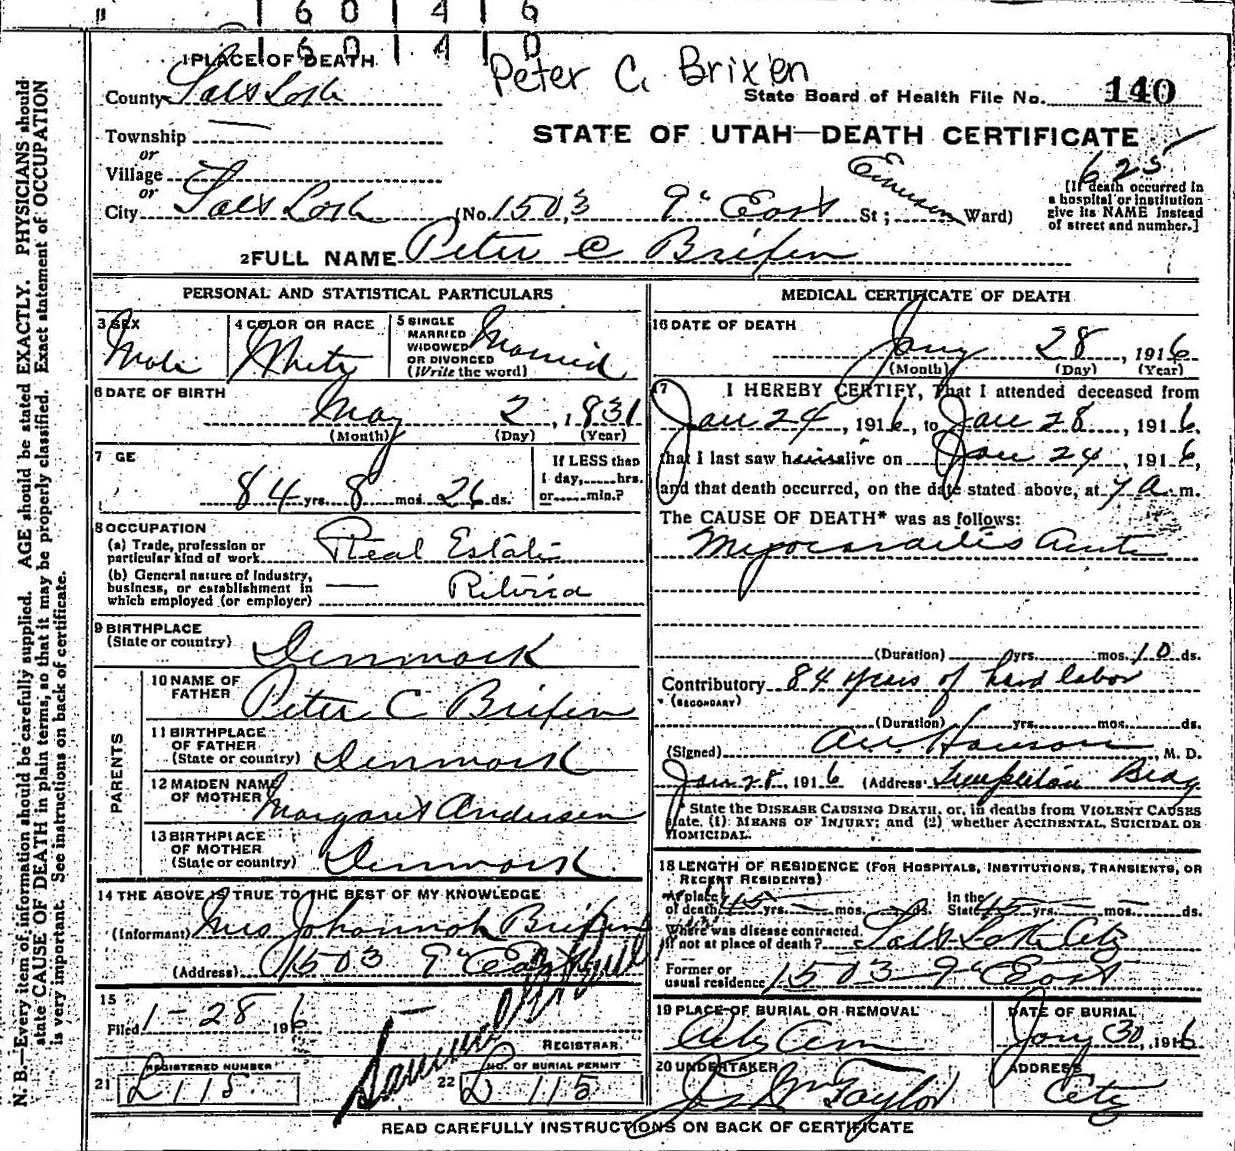 " | 6 0 | 4 | 6
| 6 0 | 4 | 0
1 PLACE OF DEATH
Peter C. Brixen
County Salt Lake
State Board of Health File No. 140
Township —
STATE OF UTAH—DEATH CERTIFICATE
or
Village
625
or
City Salt Lake (No. 1503 9" East St; Emerson Ward)
[If death occurred in
a hospital or institution
give its NAME instead
of street and number.]
2 FULL NAME Peter C Brixen
PERSONAL AND STATISTICAL PARTICULARS
3 SEX
Male
4 COLOR OR RACE
White
5 SINGLE
MARRIED
WIDOWED
OR DIVORCED
(Write the word)
Married
6 DATE OF BIRTH
May 2, 1831
(Month) (Day) (Year)
7 GE
84 yrs. 8 mos. 26 ds.
If LESS than
1 day,......hrs.
or......min.?
8 OCCUPATION
(a) Trade, profession or
particular kind of work Real Estate
(b) General nature of industry,
business, or establishment in
which employed (or employer) — Retired
9 BIRTHPLACE
(State or country) Denmark
PARENTS
10 NAME OF
FATHER Peter C Brixen
11 BIRTHPLACE
OF FATHER
(State or country) Denmark
12 MAIDEN NAME
OF MOTHER Margaret Andersen
13 BIRTHPLACE
OF MOTHER
(State or country) Denmark
14 THE ABOVE IS TRUE TO THE BEST OF MY KNOWLEDGE
(Informant) Mrs Johannah Brixen
(Address) 1503 9" East
15
Filed 1-28 1916
REGISTRAR
REGISTERED NUMBER
21 L 115
NO. OF BURIAL PERMIT
22 L 115
MEDICAL CERTIFICATE OF DEATH
16 DATE OF DEATH
Jany 28, 1916
(Month) (Day) (Year)
17 I HEREBY CERTIFY, That I attended deceased from
Jan 24, 1916, to Jan 28, 1916,
that I last saw him alive on Jan 24, 1916,
and that death occurred, on the date stated above, at 7 a m.
The CAUSE OF DEATH* was as follows:
Myocarditis Acute
(Duration) yrs. mos. 10 ds.
Contributory 84 years of hard labor
(SECONDARY)
(Duration) yrs. mos. ds.
(Signed) Hanson, M. D.
Jan 28, 1916 (Address) Templeton Bldg
* State the DISEASE CAUSING DEATH, or, in deaths from VIOLENT CAUSES
state, (1) MEANS OF INJURY; and (2) whether ACCIDENTAL, SUICIDAL OR
HOMICIDAL.
18 LENGTH OF RESIDENCE (FOR HOSPITALS, INSTITUTIONS, TRANSIENTS, OR
RECENT RESIDENTS)
At place
of death 45 yrs. — mos. — ds.
In the
State 45 yrs. — mos. — ds.
Where was disease contracted,
if not at place of death? Salt Lake City
Former or
usual residence 1503 9" East
19 PLACE OF BURIAL OR REMOVAL
City Cem
DATE OF BURIAL
Jany 30, 1916
20 UNDERTAKER
Jos Wm Taylor
ADDRESS
City
READ CAREFULLY INSTRUCTIONS ON BACK OF CERTIFICATE
N. B.—Every item of information should be carefully supplied. AGE should be stated EXACTLY. PHYSICIANS should
state CAUSE OF DEATH in plain terms, so that it may be properly classified. Exact statement of OCCUPATION
is very important. See instructions on back of certificate.